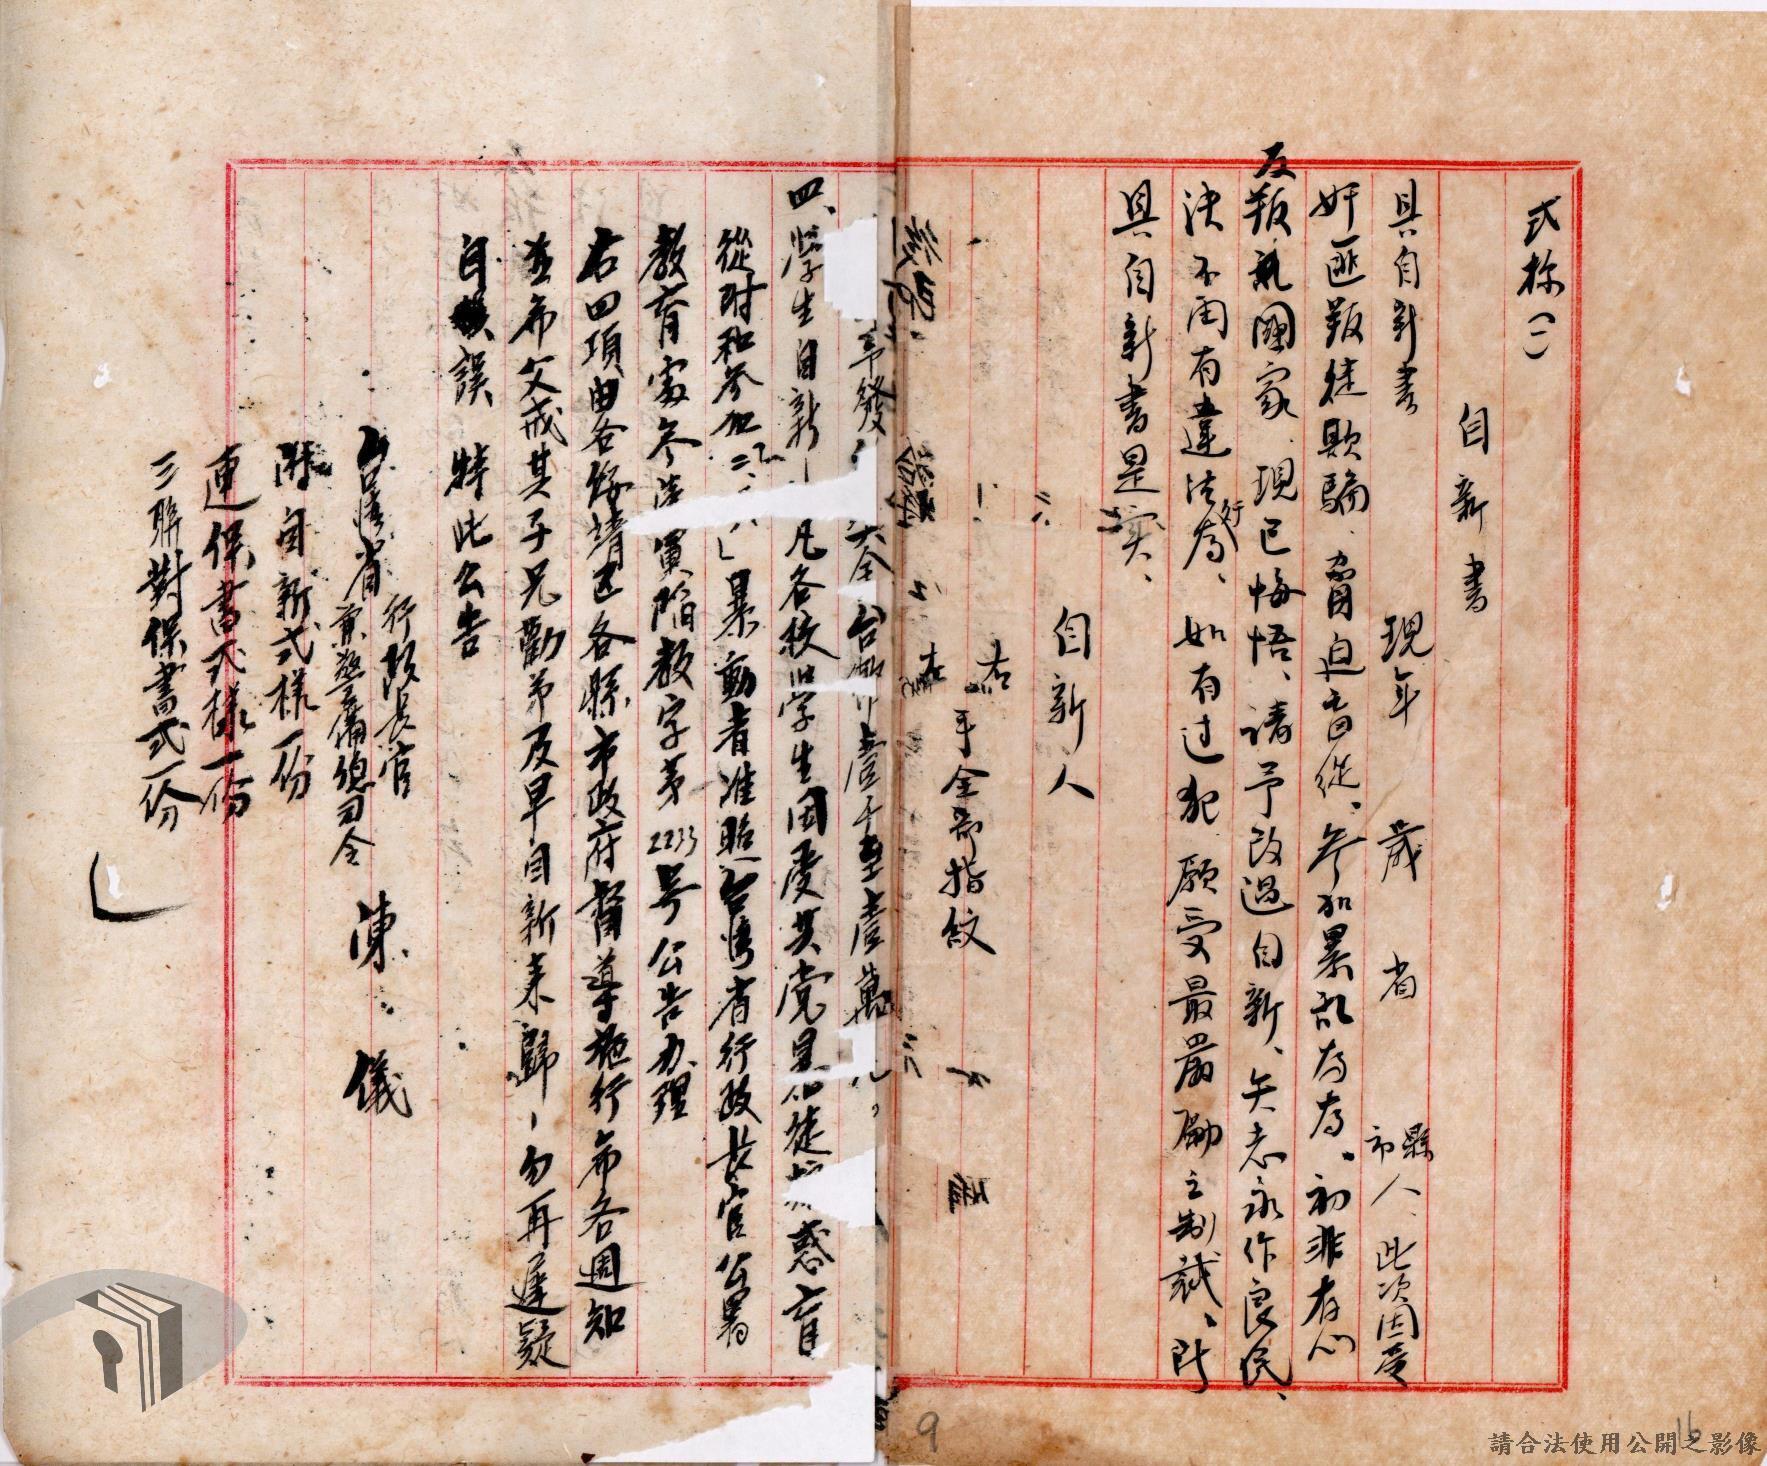 式樣(一)
自新書
具自新書 現年 歲 省 縣市人、此次因受
奸匪叛徒欺騙、脅迫盲從、參加暴亂行為、初非存心
反叛亂國家、現已悔悟、請予改過自新、矢志永作良民、
決不再有違法行為、如有过犯願受最嚴勵之制裁、所
具自新書是实、
自新人
右
左 手全部指紋
章發
台幣壹千至壹萬
四、學生自新 凡各校學生因受共党 徒 惑盲
從附和參加「二、二八」暴動者准照台灣省行政長官公署
教育處 教字第2233号公告办理
右四項由各綏靖区各縣市政府督導施行希各週知
並希父戒其子兄勸弟及早自新来歸、勿再遲疑
自誤 特此公告
台灣省行政長官
兼警備總司令 陳 儀
附自新式樣一份
連保書式樣一份
三聯對保書式一份
9
16
請合法使用公開之影像